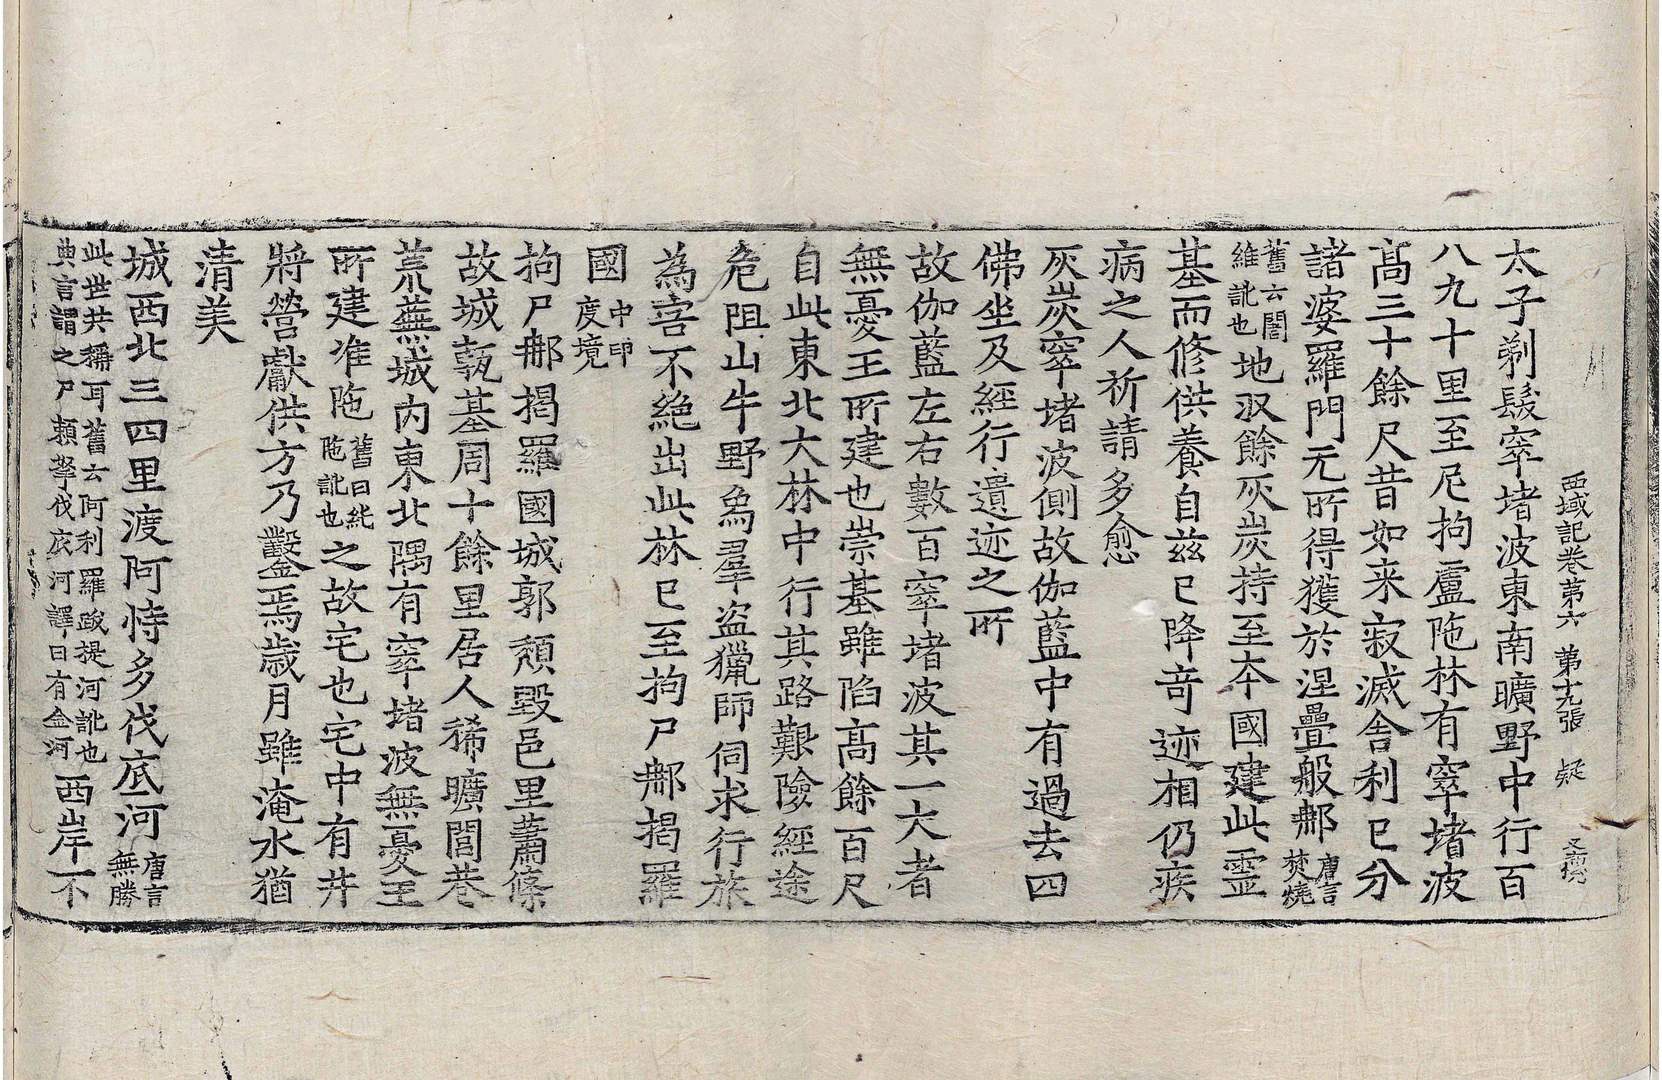 西域記卷苐六 苐十九張 疑
太子剃髮窣堵波東南曠野中行百
八九十里至尼拘盧陁林有窣堵波
髙三十餘尺昔如来寂滅舍利已分
諸婆羅門无所得獲於涅疊般那唐言焚燒
舊云闍維訛也地収餘灰炭持至本國建此靈
基而修供養自兹已降竒迹相仍疾
病之人祈請多愈
灰炭窣堵波側故伽藍中有過去四
佛坐及經行遺迹之所
故伽藍左右數百窣堵波其一大者
無憂王所建也崇基雖陷髙餘百尺
自此東北大林中行其路艱險經途
危阻山牛野象羣盗獵師伺求行旅
為害不絶出此林已至拘尸那揭羅
國中印度境
拘尸那揭羅國城郭頹毀邑里蕭條
故城甎基周十餘里居人稀曠閭巷
荒蕪城内東北隅有窣堵波無憂王
所建准陁舊曰純陁訛也之故宅也宅中有井
將營獻供方乃鑿焉歳月雖淹水猶
清美
城西北三四里渡阿恃多伐底河唐言無勝
此世共稱耳舊云阿利羅跋提河訛也典言謂之尸頼拏伐底河譯曰有金河西岸不